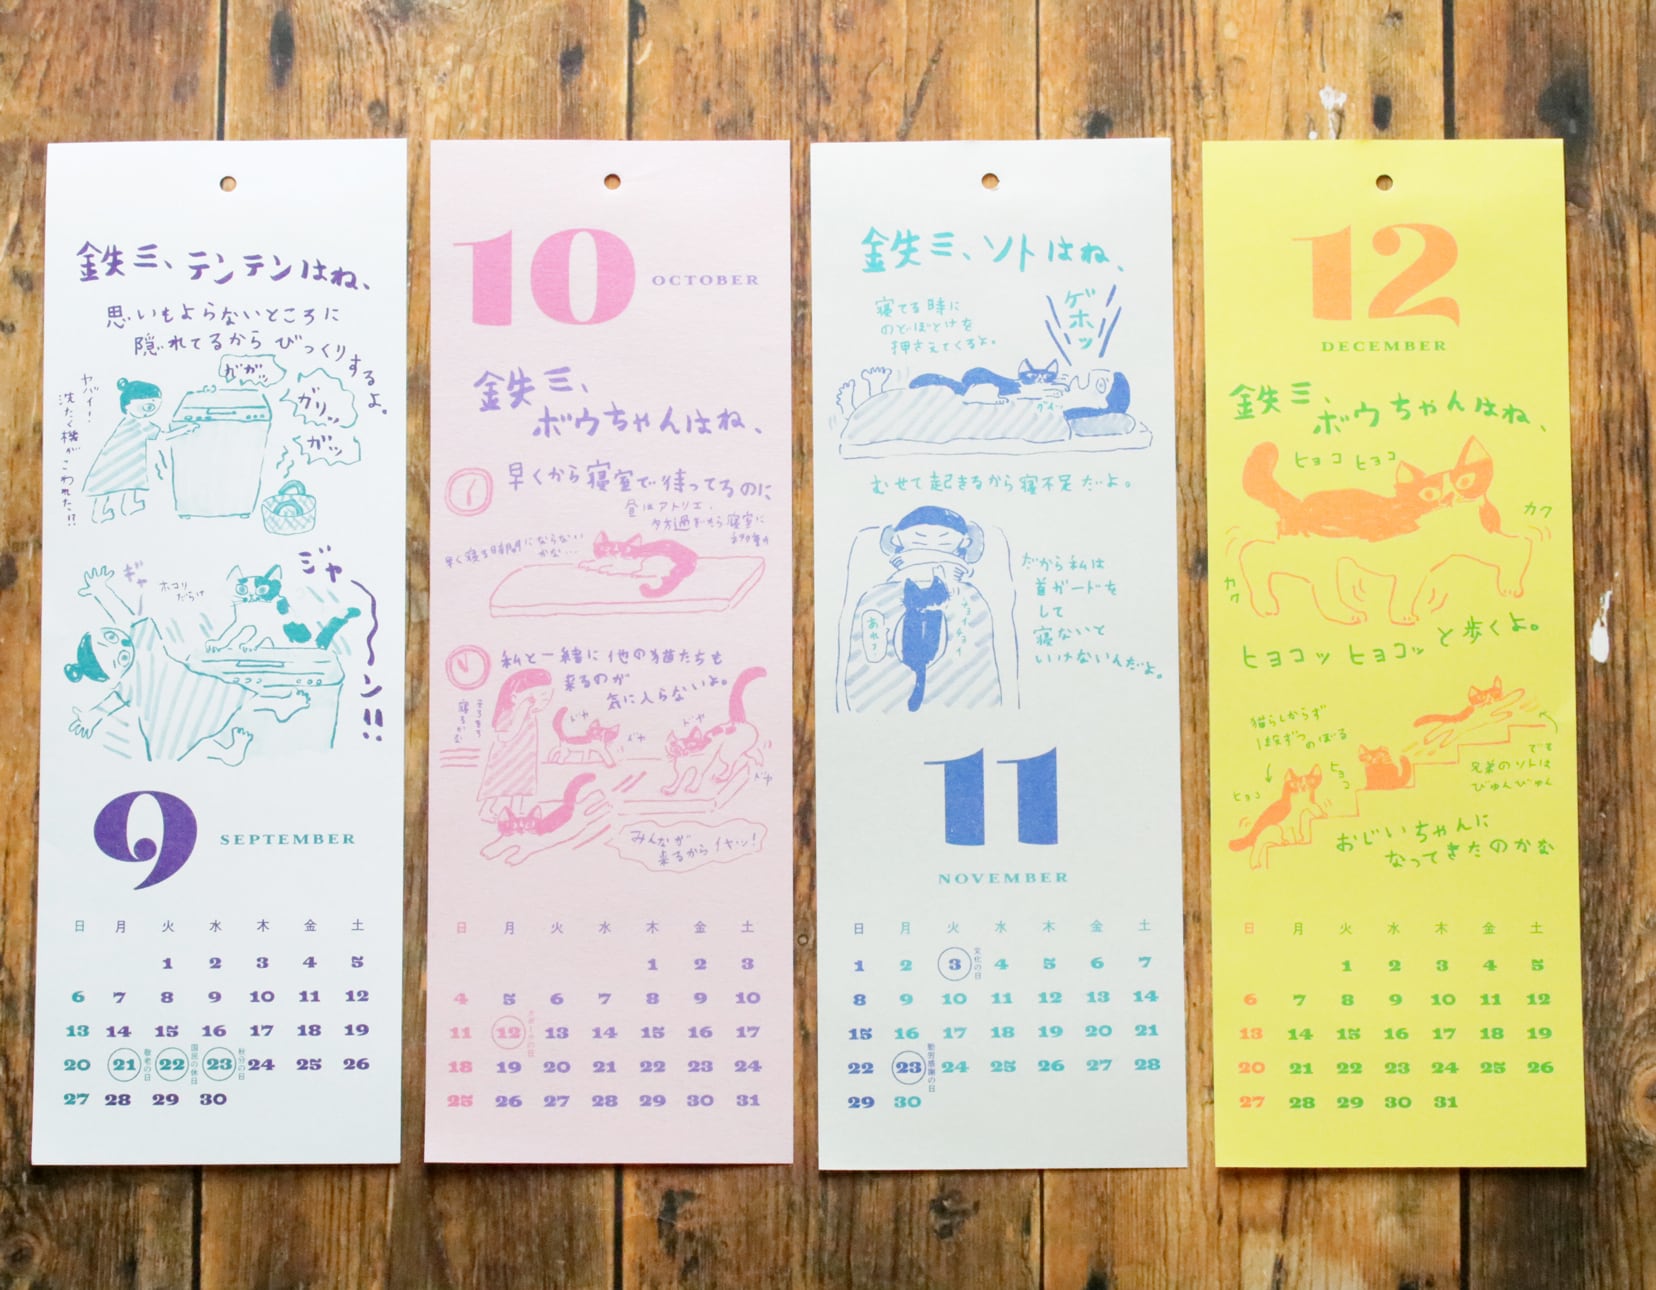 鉄三、テンテンはね、
思いもよらないところに
隠れてるからびっくりするよ。
ヤバイ!
洗たく機がこわれた!!
ガガッ
ガリッ
ガッ
ギャ
ホコリだらけ
ジャーン!!
9 SEPTEMBER
日 月 火 水 木 金 土
1 2 3 4 5
6 7 8 9 10 11 12
13 14 15 16 17 18 19
20 21 敬老の日 22 国民の休日 23 秋分の日 24 25 26
27 28 29 30
10 OCTOBER
鉄三、
ボウちゃんはね、
早くから寝室で待ってるのに
昼はアトリエ、
夕方過ぎたら寝室に
早く寝る時間にならない
かな…
私と一緒に他の猫たちも
来るのが
気に入らないよ。
そろそろ
寝るかな
ドヤ
ドヤ
ドヤ
ドヤ
みんなが
来るからイヤッ!
日 月 火 水 木 金 土
1 2 3
4 5 6 7 8 9 10
11 12 スポーツの日 13 14 15 16 17
18 19 20 21 22 23 24
25 26 27 28 29 30 31
鉄三、ソトはね、
寝てる時に
のどぼとけを
押さえてくるよ。
ゲホッ
グイッ
むせて起きるから寝不足だよ。
だから私は
首ガードを
して
寝ないと
いけないんだよ。
あれっ
チョイチョイ
11
NOVEMBER
日 月 火 水 木 金 土
1 2 3 文化の日 4 5 6 7
8 9 10 11 12 13 14
15 16 17 18 19 20 21
22 23 勤労感謝の日 24 25 26 27 28
29 30
12
DECEMBER
鉄三、
ボウちゃんはね、
ヒョコ ヒョコ
カク
カク
ヒョコッ ヒョコッと歩くよ。
猫らしからず
1段ずつのぼる
ヒョコ
ヒョコ
でも
兄弟のソトは
びゅんびゅん
おじいちゃんに
なってきたのかな
日 月 火 水 木 金 土
1 2 3 4 5
6 7 8 9 10 11 12
13 14 15 16 17 18 19
20 21 22 23 24 25 26
27 28 29 30 31